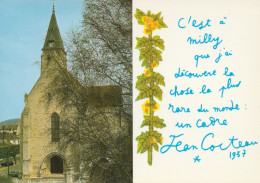 C'est à
milly
que j'ai
découvert la
chose la plus
rare du monde :
un cadre
Jean Cocteau
* 1957